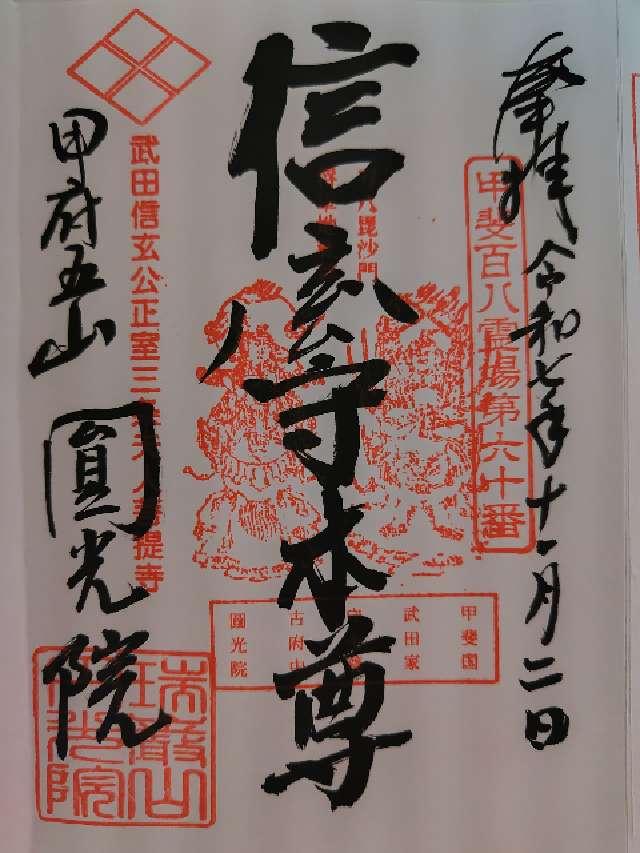 奉拝 令和七年十一月二日
甲斐百八霊場第六十番
信玄公守本尊
毘沙門
甲府五山 圓光院
武田信玄公正室三条夫人菩提寺
甲斐国
武田家
古府中
圓光院
瑞巌山
圓光院